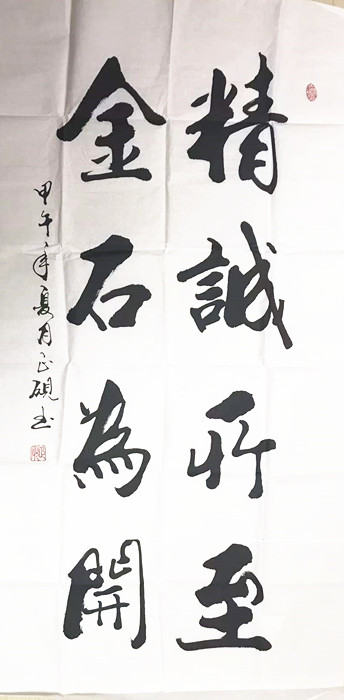 精誠所至
金石為開
甲午年夏月正硯书